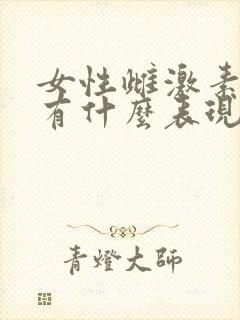 女性雌激素
有什麼表現
青燈大師